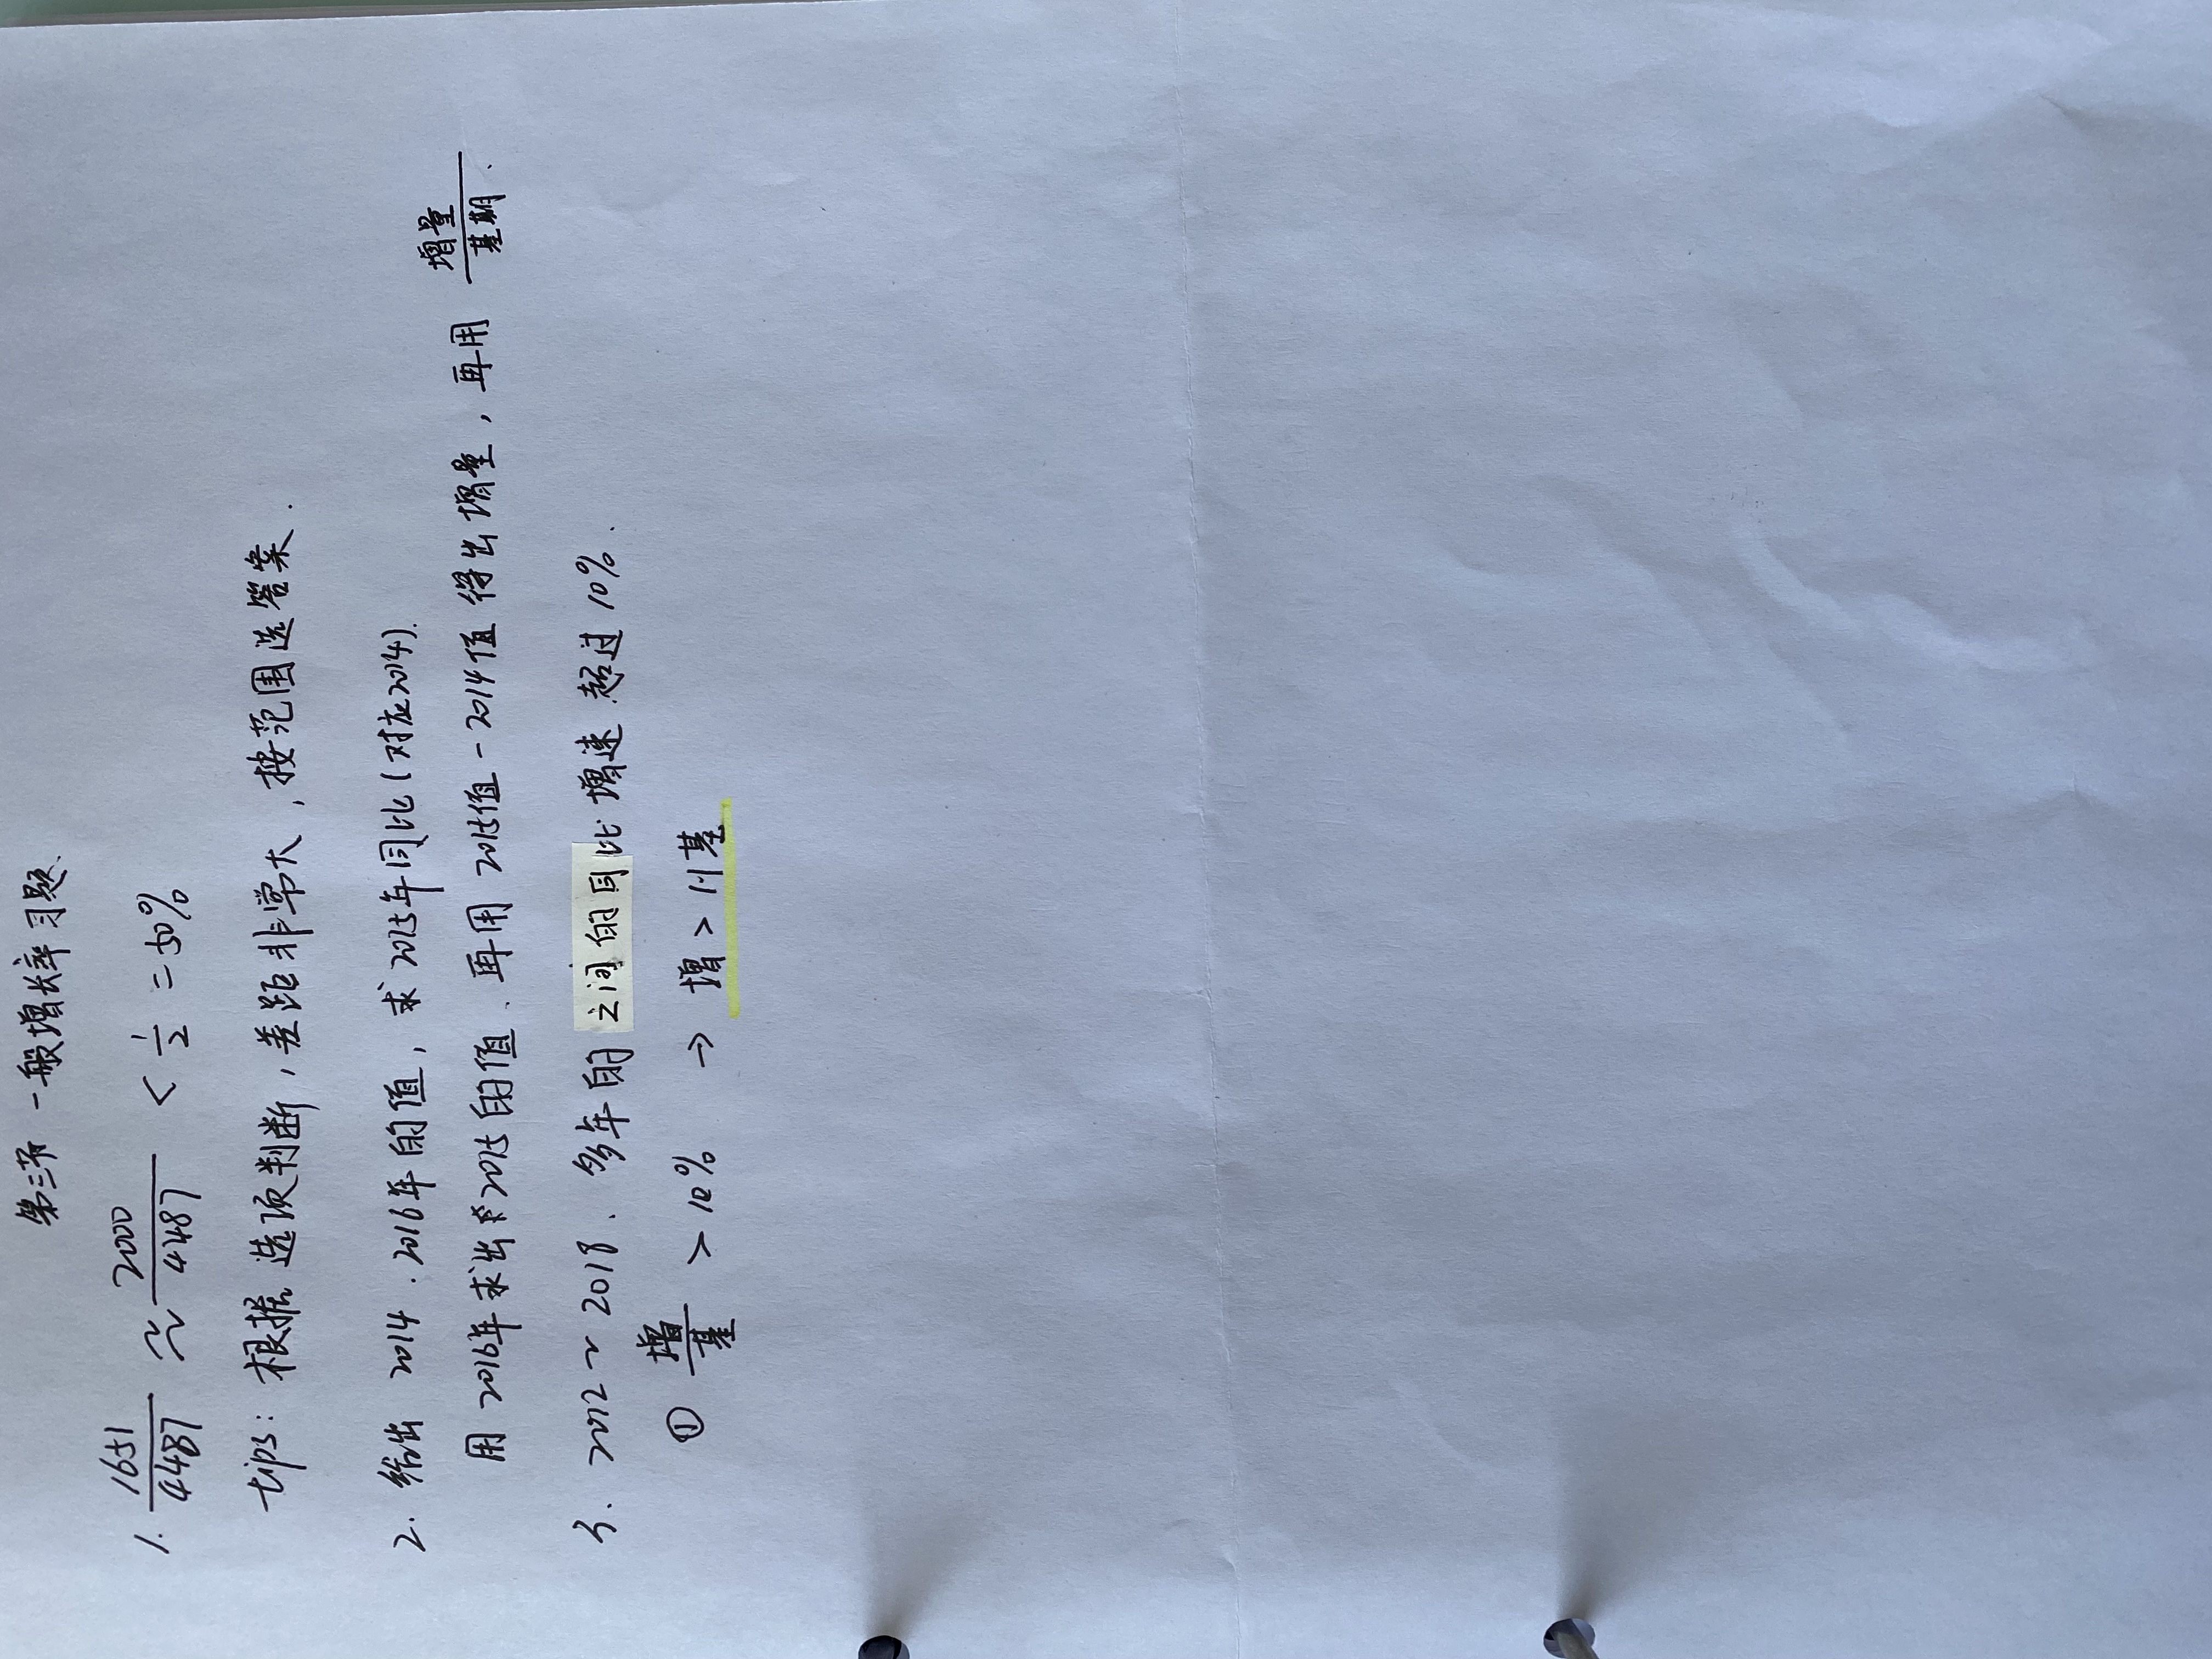 第三节 一般增长率习题.
1. 1651/4487 ≈ 2000/4487 < 1/2 = 50%
tips: 根据选项判断, 差距非常大, 按范围选答案.
2. 给出 2014 . 2016年的值, 求2015年同比(对应2014).
用2016年求出2015的值. 再用2015值-2014值得出增量, 再用 增量/基期.
3. 2012~2018. 多年的之间的同比增速超过10%.
① 增/基 > 10% → 增 > 0.1基